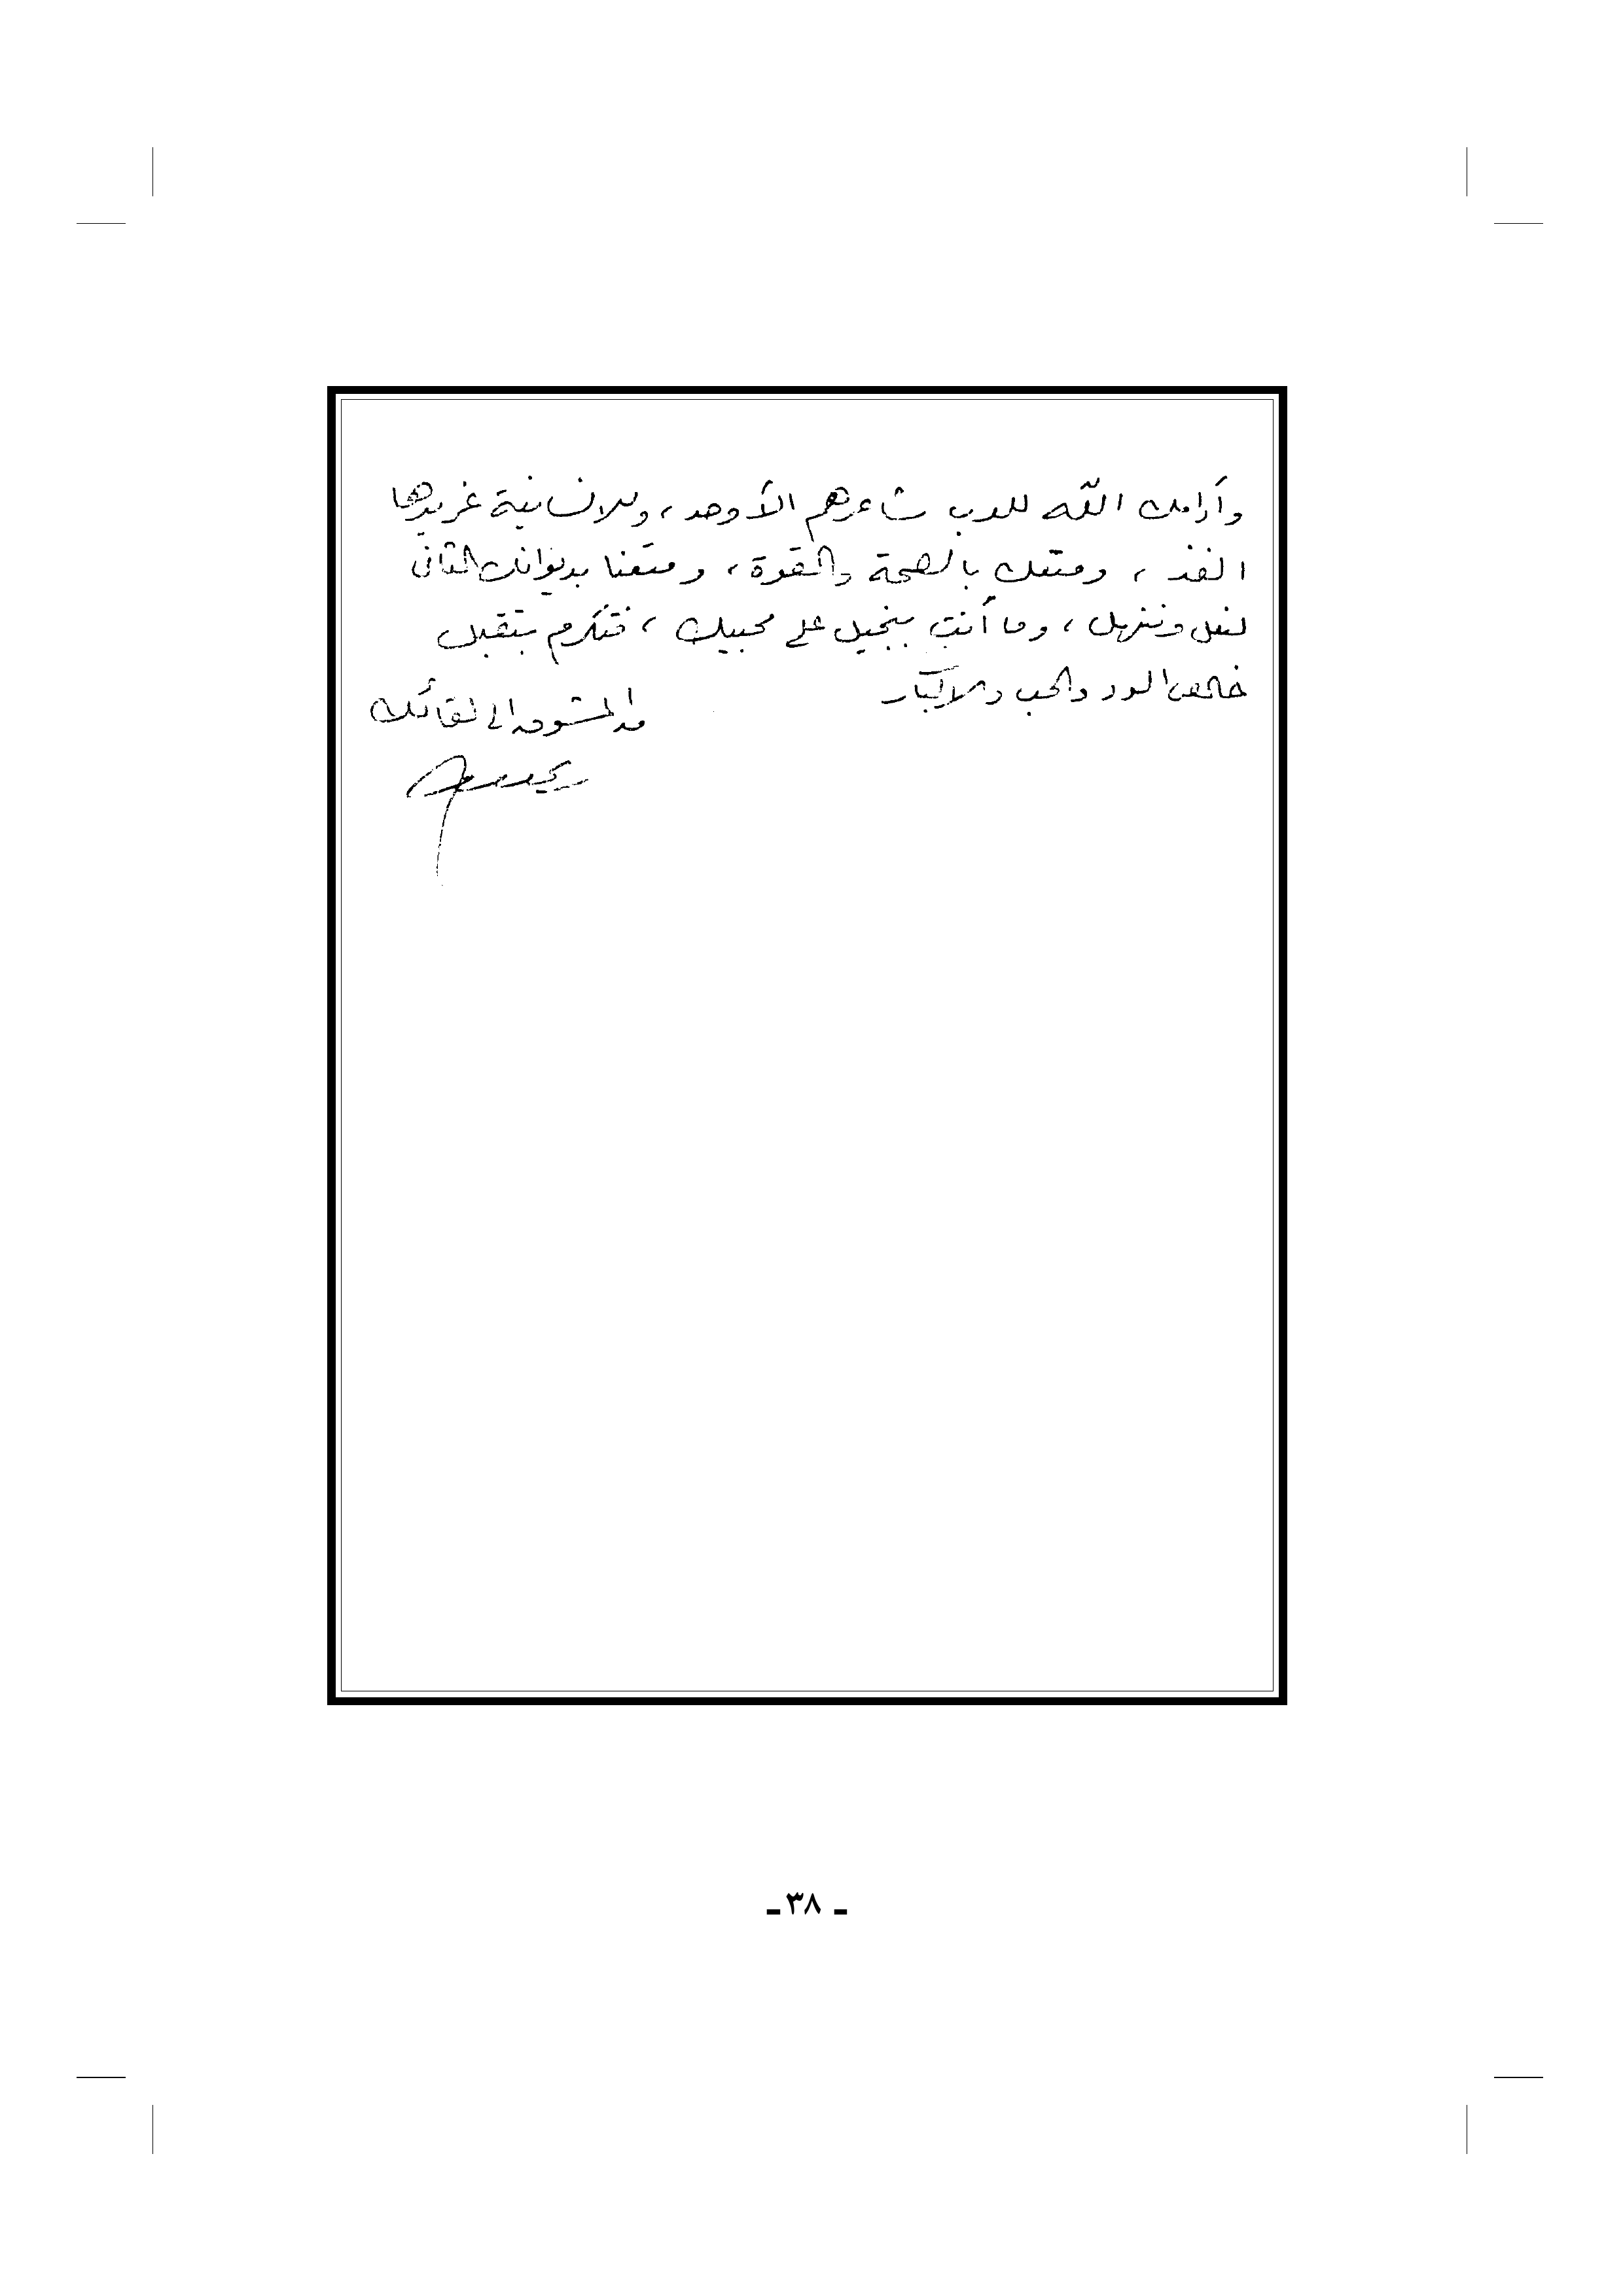 وأدامك الله للعرب شاعرهم الأوحد، وللانسانية غريدها
الفذ، ومتعك بالصحة والقوة، ومتعنا بديوانك الثاني
لنعل وننهل، وما أنت ببخيل على محبيك، فتكرم بتقبل
خالص الود والحب والإكبار
من المشوق الى لقائك
ـ ٣٨ ـ